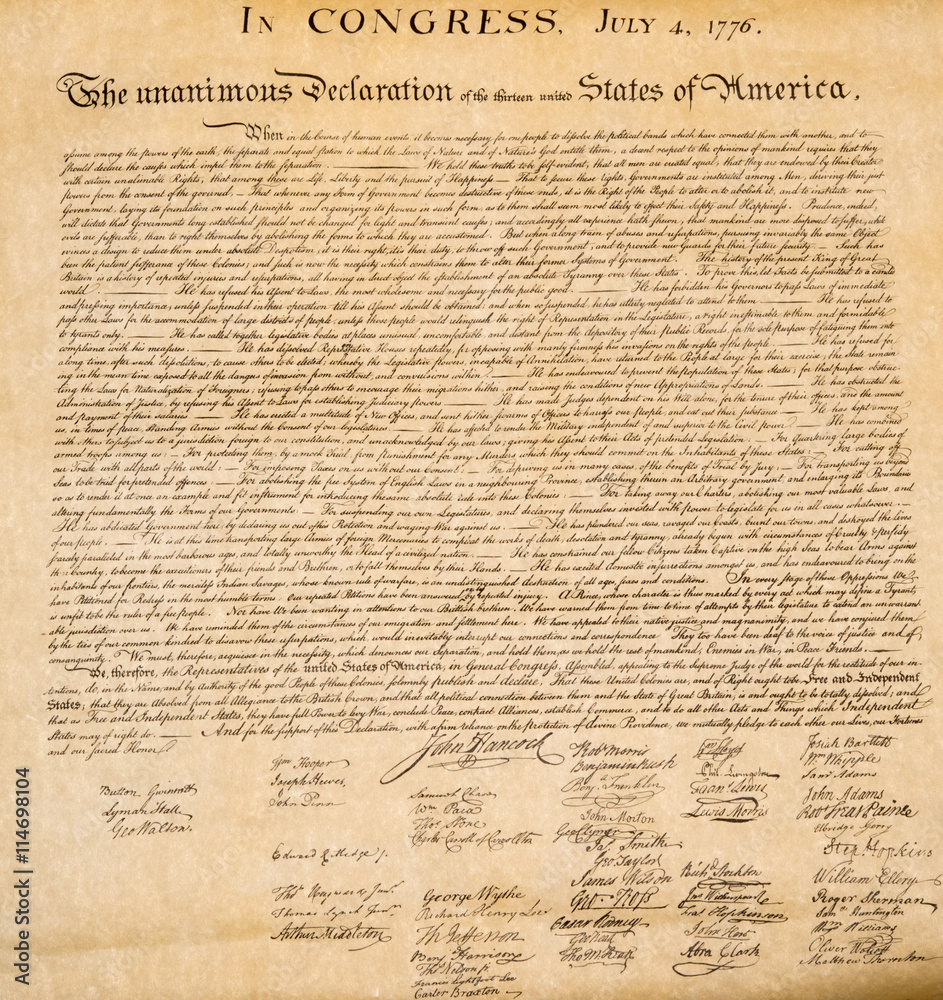 IN CONGRESS, JULY 4, 1776.
The unanimous Declaration of the thirteen united States of America,
When in the Course of human events, it becomes necessary for one people to dissolve the political bands which have connected them with another, and to
assume among the powers of the earth, the separate and equal station to which the Laws of Nature and of Nature's God entitle them, a decent respect to the opinions of mankind requires that they
should declare the causes which impel them to the separation. — We hold these truths to be self-evident, that all men are created equal, that they are endowed by their Creator
with certain unalienable Rights, that among these are Life, Liberty and the pursuit of Happiness — That to secure these rights, Governments are instituted among Men, deriving their just
powers from the consent of the governed, — That whenever any Form of Government becomes destructive of these ends, it is the Right of the People to alter or to abolish it, and to institute new
Government, laying its foundation on such principles and organizing its powers in such form, as to them shall seem most likely to effect their Safety and Happiness. Prudence, indeed,
will dictate that Governments long established should not be changed for light and transient causes; and accordingly all experience hath shewn, that mankind are more disposed to suffer, while
evils are sufferable, than to right themselves by abolishing the forms to which they are accustomed. But when a long train of abuses and usurpations, pursuing invariably the same Object
evinces a design to reduce them under absolute Despotism, it is their right, it is their duty, to throw off such Government, and to provide new Guards for their future security. — Such has
been the patient sufferance of these Colonies; and such is now the necessity which constrains them to alter their former Systems of Government. The history of the present King of Great
Britain is a history of repeated injuries and usurpations, all having in direct object the establishment of an absolute Tyranny over these States. To prove this, let Facts be submitted to a candid
world. — He has refused his Assent to Laws, the most wholesome and necessary for the public good. — He has forbidden his Governors to pass Laws of immediate
and pressing importance, unless suspended in their operation till his Assent should be obtained; and when so suspended, he has utterly neglected to attend to them. — He has refused to
pass other Laws for the accommodation of large districts of people, unless those people would relinquish the right of Representation in the Legislature, a right inestimable to them and formidable
to tyrants only. — He has called together legislative bodies at places unusual, uncomfortable, and distant from the depository of their Public Records, for the sole purpose of fatiguing them into
compliance with his measures. — He has dissolved Representative Houses repeatedly, for opposing with manly firmness his invasions on the rights of the people. — He has refused for
a long time, after such dissolutions, to cause others to be elected; whereby the Legislative powers, incapable of Annihilation, have returned to the People at large for their exercise; the State remain
ing in the mean time exposed to all the dangers of invasion from without, and convulsions within. — He has endeavoured to prevent the population of these States; for that purpose obstruc-
ting the Laws for Naturalization of Foreigners; refusing to pass others to encourage their migrations hither, and raising the conditions of new Appropriations of Lands. — He has obstructed the
Administration of Justice, by refusing his Assent to Laws for establishing Judiciary powers. — He has made Judges dependent on his Will alone, for the tenure of their offices, and the amount
and payment of their salaries. — He has erected a multitude of New Offices, and sent hither swarms of Officers to harrass our people, and eat out their substance. — He has kept among
us, in times of peace, Standing Armies without the Consent of our legislatures. — He has affected to render the Military independent of and superior to the Civil power. — He has combined
with others to subject us to a jurisdiction foreign to our constitution, and unacknowledged by our laws; giving his Assent to their Acts of pretended Legislation: — For Quartering large bodies of
armed troops among us: — For protecting them, by a mock Trial, from punishment for any Murders which they should commit on the Inhabitants of these States: — For cutting off
our Trade with all parts of the world: — For imposing Taxes on us without our Consent: — For depriving us in many cases, of the benefits of Trial by Jury: — For transporting us beyond
Seas to be tried for pretended offences — For abolishing the free System of English Laws in a neighbouring Province, establishing therein an Arbitrary government, and enlarging its Boundaries
so as to render it at once an example and fit instrument for introducing the same absolute rule into these Colonies: — For taking away our Charters, abolishing our most valuable Laws, and
altering fundamentally the Forms of our Governments: — For suspending our own Legislatures, and declaring themselves invested with power to legislate for us in all cases whatsoever. —
He has abdicated Government here, by declaring us out of his Protection and waging War against us. — He has plundered our seas, ravaged our Coasts, burnt our towns, and destroyed the lives
of our people. — He is at this time transporting large Armies of foreign Mercenaries to compleat the works of death, desolation and tyranny, already begun with circumstances of Cruelty & perfidy
scarcely paralleled in the most barbarous ages, and totally unworthy the Head of a civilized nation. — He has constrained our fellow Citizens taken Captive on the high Seas to bear Arms against
their Country, to become the executioners of their friends and Brethren, or to fall themselves by their Hands. — He has excited domestic insurrections amongst us, and has endeavoured to bring on the
inhabitants of our frontiers, the merciless Indian Savages, whose known rule of warfare, is an undistinguished destruction of all ages, sexes and conditions. In every stage of these Oppressions We
have Petitioned for Redress in the most humble terms: Our repeated Petitions have been answered only by repeated injury. A Prince, whose character is thus marked by every act which may define a Tyrant,
is unfit to be the ruler of a free people. Nor have We been wanting in attentions to our Brittish brethren. We have warned them from time to time of attempts by their legislature to extend an unwarrant
able jurisdiction over us. We have reminded them of the circumstances of our emigration and settlement here. We have appealed to their native justice and magnanimity, and we have conjured them
by the ties of our common kindred to disavow these usurpations, which, would inevitably interrupt our connections and correspondence. They too have been deaf to the voice of justice and of
consanguinity. We must, therefore, acquiesce in the necessity, which denounces our Separation, and hold them, as we hold the rest of mankind, Enemies in War, in Peace Friends. —
We, therefore, the Representatives of the united States of America, in General Congress, Assembled, appealing to the Supreme Judge of the world for the rectitude of our in-
tentions, do, in the Name, and by Authority of the good People of these Colonies, solemnly publish and declare, That these United Colonies are, and of Right ought to be Free and Independent
States; that they are Absolved from all Allegiance to the British Crown, and that all political connection between them and the State of Great Britain, is and ought to be totally dissolved; and
that as Free and Independent States, they have full Power to levy War, conclude Peace, contract Alliances, establish Commerce, and to do all other Acts and Things which Independent
States may of right do. — And for the support of this Declaration, with a firm reliance on the protection of divine Providence, we mutually pledge to each other our Lives, our Fortunes
and our sacred Honor.
John Hancock
Button Gwinnett
Lyman Hall
Geo Walton.
Wm Hooper
Joseph Hewes,
John Penn
Edward Rutledge Jr.
Thos Heyward Junr.
Thomas Lynch Junr.
Arthur Middleton
Samuel Chase
Wm Paca
Thos Stone
Charles Carroll of Carrollton
George Wythe
Richard Henry Lee
Th Jefferson
Benj Harrison
Thos Nelson jr.
Francis Lightfoot Lee
Carter Braxton
Robt Morris
Benjamin Rush
Benj. Franklin
John Morton
Geo Clymer
Jas. Smith
Geo. Taylor
James Wilson
Geo. Ross
Caesar Rodney
Geo Read
Tho M:Kean
Wm Floyd
Phil. Livingston
Frans. Lewis
Lewis Morris
Richd. Stockton
Jno Witherspoon
Fras. Hopkinson
John Hart
Abra Clark
Josiah Bartlett
Wm Whipple
Saml Adams
John Adams
Robt Treat Paine
Elbridge Gerry
Step. Hopkins
William Ellery
Roger Sherman
Saml Huntington
Wm Williams
Oliver Wolcott
Matthew Thornton
Adobe Stock | #114698104